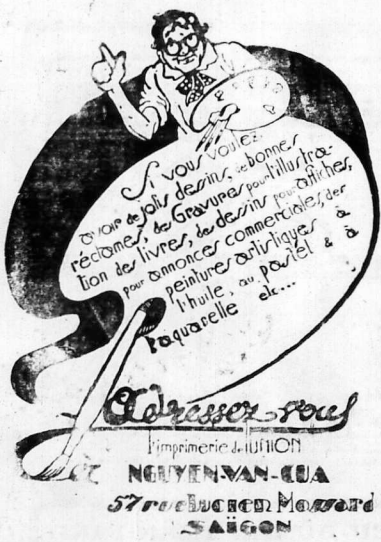 Si vous voulez
avoir de jolis dessins, de bonnes
réclames, des Gravures pour l'illustra-
tion des livres, des dessins pour affiches,
pour annonces commerciales, des
peintures artistiques à
l'huile, au pastel & à
l'aquarelle etc...
Adressez-vous
l'imprimerie de l'UNION
NGUYEN-VAN-CUA
57 rue Lucien Mossard
SAIGON